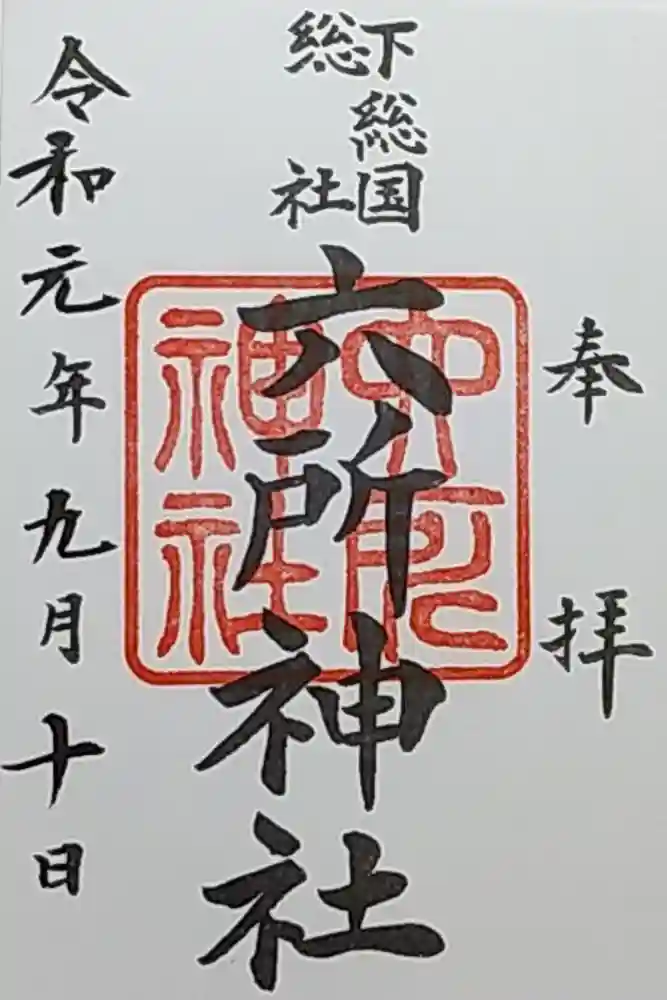 奉拝
下総国
総社
六所神社
六所
神社
令和元年九月十日